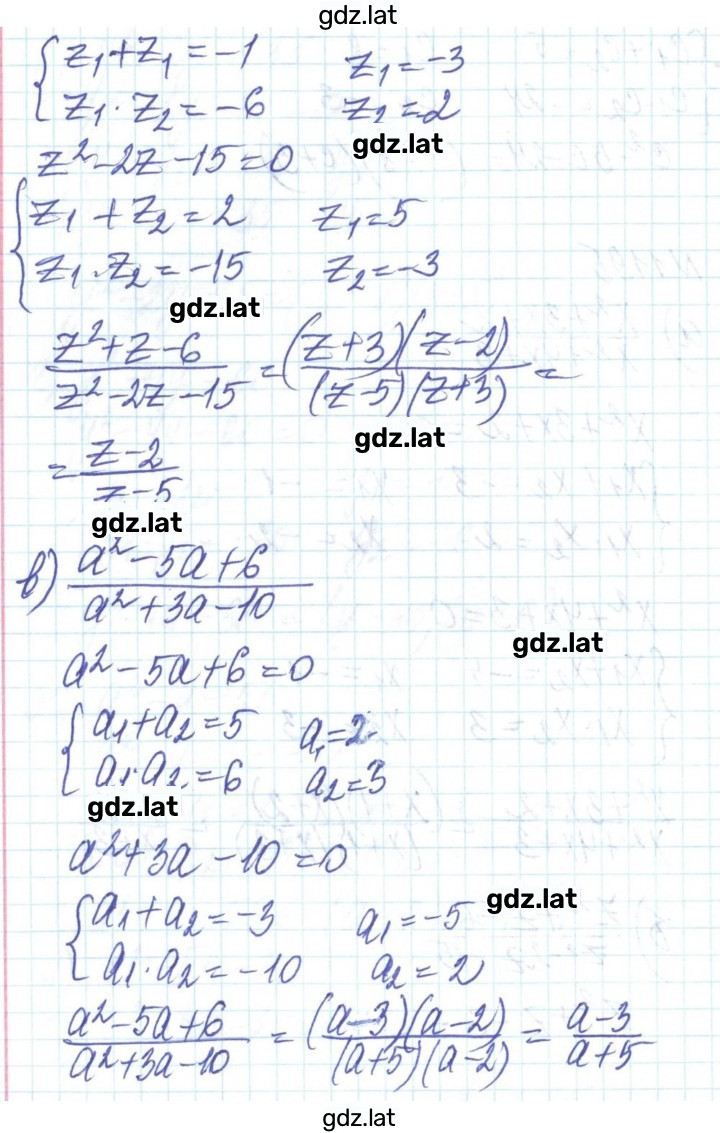 gdz.lat
{ z₁+z₁=-1 z₁=-3
z₁·z₂=-6 z₂=2
gdz.lat
z²-2z-15=0
{ z₁+z₂=2 z₁=5
z₁·z₂=-15 z₂=-3
gdz.lat
(z²+z-6)/(z²-2z-15) = ((z+3)(z-2))/((z-5)(z+3)) =
gdz.lat
= (z-2)/(z-5)
gdz.lat
в) (a²-5a+6)/(a²+3a-10)
gdz.lat
a²-5a+6=0
{ a₁+a₂=5 a₁=2
a₁·a₂=6 a₂=3
gdz.lat
a²+3a-10=0
gdz.lat
{ a₁+a₂=-3 a₁=-5
a₁·a₂=-10 a₂=2
(a²-5a+6)/(a²+3a-10) = ((a-3)(a-2))/((a+5)(a-2)) = (a-3)/(a+5)
gdz.lat